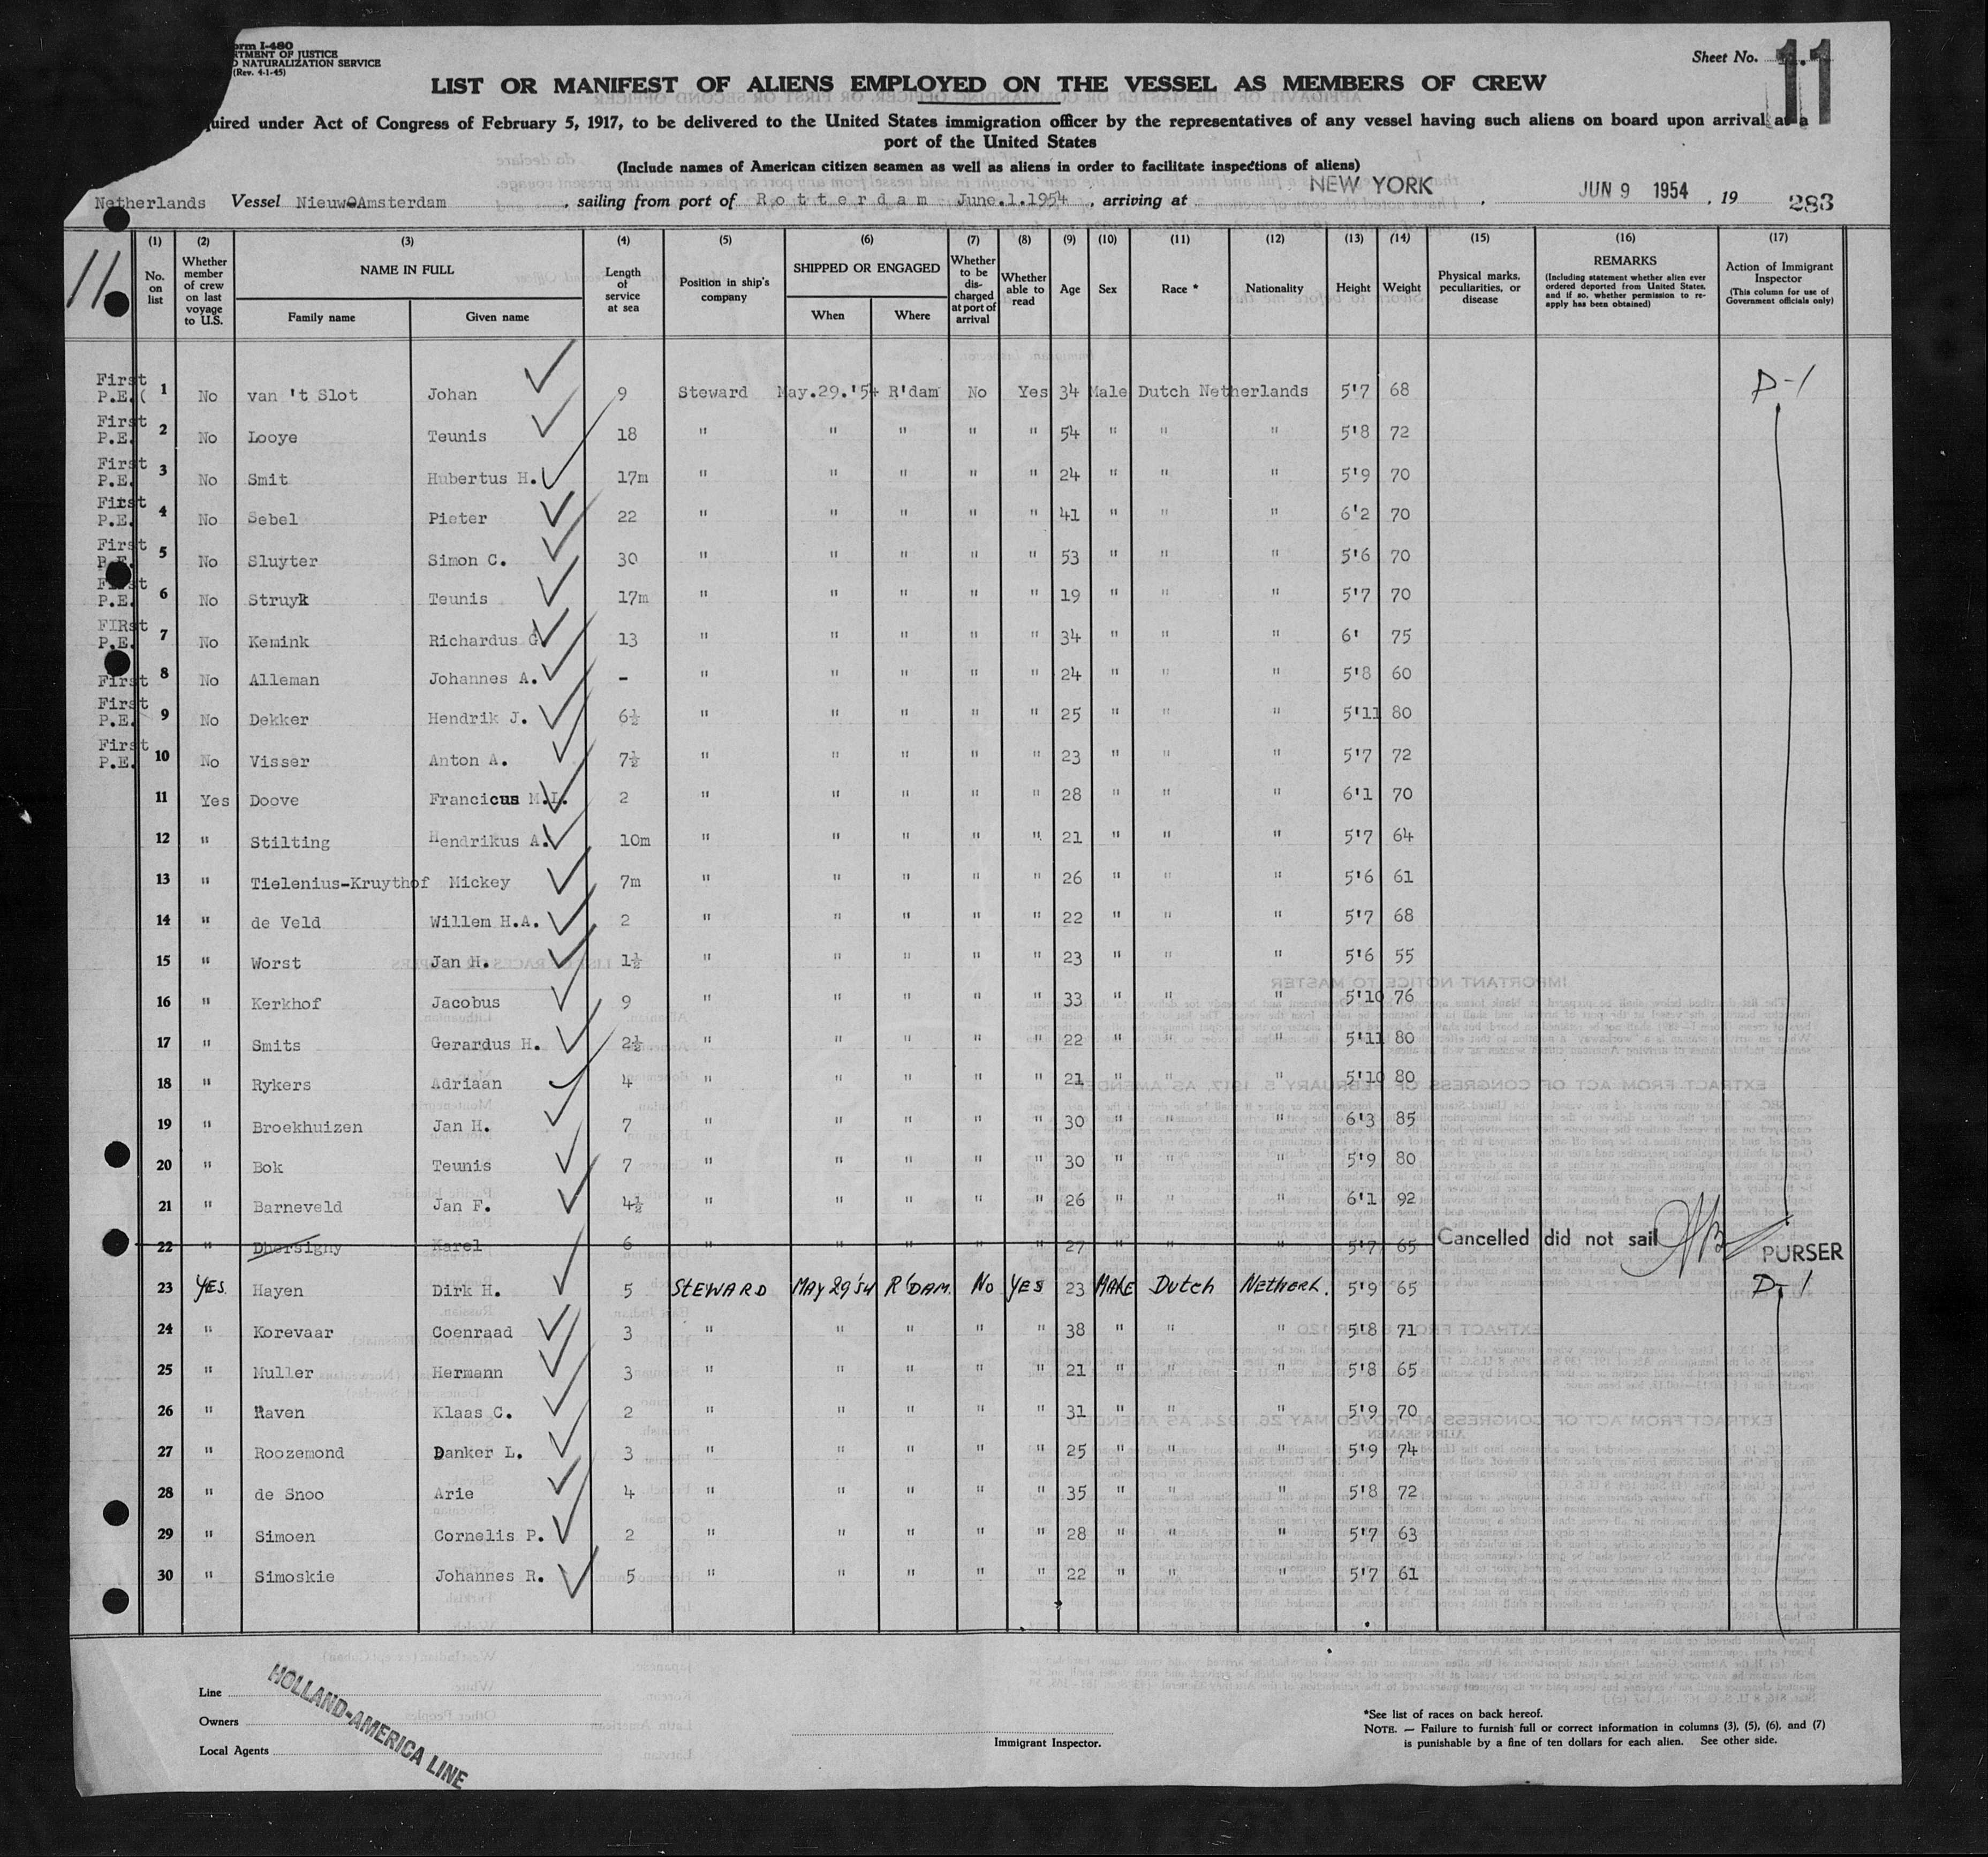 orm I-480
RTMENT OF JUSTICE
NATURALIZATION SERVICE
(Rev. 4-1-45)
Sheet No. 11
LIST OR MANIFEST OF ALIENS EMPLOYED ON THE VESSEL AS MEMBERS OF CREW
quired under Act of Congress of February 5, 1917, to be delivered to the United States immigration officer by the representatives of any vessel having such aliens on board upon arrival at a
port of the United States
(Include names of American citizen seamen as well as aliens in order to facilitate inspections of aliens)
Netherlands Vessel Nieuw Amsterdam, sailing from port of Rotterdam June.1.1954, arriving at NEW YORK, JUN 9 1954, 19 283
11
(1) (2) (3) (4) (5) (6) (7) (8) (9) (10) (11) (12) (13) (14) (15) (16) (17)
No. on list
Whether member of crew on last voyage to U.S.
NAME IN FULL
Family name Given name
Length of service at sea
Position in ship's company
SHIPPED OR ENGAGED
When Where
Whether to be discharged at port of arrival
Whether able to read
Age Sex Race * Nationality Height Weight
Physical marks, peculiarities, or disease
REMARKS
(Including statement whether alien ever ordered deported from United States, and if so, whether permission to re-apply has been obtained)
Action of Immigrant Inspector
(This column for use of Government officials only)
First P.E.( 1 No van 't Slot Johan 9 Steward May.29.'54 R'dam No Yes 34 Male Dutch Netherlands 5'7 68 D-1
First P.E. 2 No Looye Teunis 18 " " " " " 54 " " " 5'8 72
First P.E. 3 No Smit Hubertus H. 17m " " " " " 24 " " " 5'9 70
First P.E. 4 No Sebel Pieter 22 " " " " " 41 " " " 6'2 70
First P.E. 5 No Sluyter Simon C. 30 " " " " " 53 " " " 5'6 70
First P.E. 6 No Struyk Teunis 17m " " " " " 19 " " " 5'7 70
FIRst P.E. 7 No Kemink Richardus G 13 " " " " " 34 " " " 6' 75
First 8 No Alleman Johannes A. - " " " " " 24 " " " 5'8 60
First P.E. 9 No Dekker Hendrik J. 6½ " " " " " 25 " " " 5'11 80
First P.E. 10 No Visser Anton A. 7½ " " " " " 23 " " " 5'7 72
11 Yes Doove Francicus M.L. 2 " " " " " 28 " " " 6'1 70
12 " Stilting Hendrikus A. 10m " " " " " 21 " " " 5'7 64
13 " Tielenius-Kruythof Mickey 7m " " " " " 26 " " " 5'6 61
14 " de Veld Willem H.A. 2 " " " " " 22 " " " 5'7 68
15 " Worst Jan H. 1½ " " " " " 23 " " " 5'6 55
16 " Kerkhof Jacobus 9 " " " " " 33 " " " 5'10 76
17 " Smits Gerardus H. 2½ " " " " " 22 " " " 5'11 80
18 " Rykers Adriaan 4 " " " " " 21 " " " 5'10 80
19 " Broekhuizen Jan H. 7 " " " " " 30 " " " 6'3 85
20 " Bok Teunis 7 " " " " " 30 " " " 5'9 80
21 " Barneveld Jan F. 4½ " " " " " 26 " " " 6'1 92
22 " Dhersigny Karel 6 " " " " " 27 " " " 5'7 65 Cancelled did not sail PURSER
23 YES. Hayen Dirk H. 5 STEWARD MAY 29'54 R'DAM. No YES 23 MALE Dutch Netherl. 5'9 65 D-1
24 " Korevaar Coenraad 3 " " " " " 38 " " " 5'8 71
25 " Muller Hermann 3 " " " " " 21 " " " 5'8 65
26 " Raven Klaas C. 2 " " " " " 31 " " " 5'9 70
27 " Roozemond Danker L. 3 " " " " " 25 " " " 5'9 74
28 " de Snoo Arie 4 " " " " " 35 " " " 5'8 72
29 " Simoen Cornelis P. 2 " " " " " 28 " " " 5'7 63
30 " Simoskie Johannes R. 5 " " " " " 22 " " " 5'7 61
Line
Owners
Local Agents
HOLLAND-AMERICA LINE
Immigrant Inspector.
*See list of races on back hereof.
NOTE. — Failure to furnish full or correct information in columns (3), (5), (6), and (7)
is punishable by a fine of ten dollars for each alien. See other side.